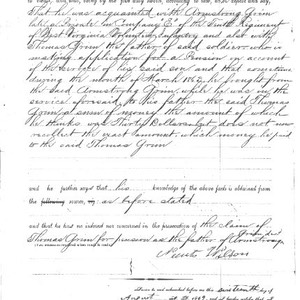 that he was acquainted with Armstrong Grim
late a Private in Company "B" of the Tenth Regiment
of West Virginia Volunteer Infantry and also with
Thomas Grim the father of said soldier, who is
making application for a Pension on account
of the service of his said son and that sometime
during the month of March 186 he brought from
the said Armstrong Grim while he was in the
service forward, to his father the said Thomas
Grim, a sum of money the amount of which
he thinks was Thirty Dollars but does not now
recollect the exact amount, which money he paid
to the said Thomas Grim
and he further says that his knowledge of the above facts is obtained from
the following source, as before stated
and that he has no interest nor concern in the prosecution of the claim of
Thomas Grim for pension as the father of Armstrong Grim
Wilson
Sworn to and subscribed before me this day of
August